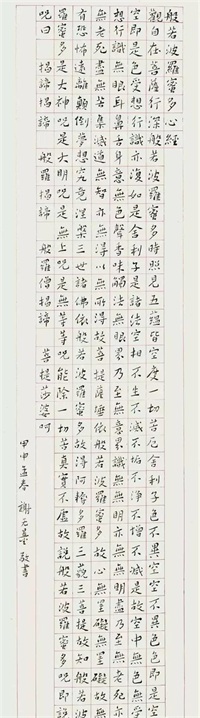 般若波羅蜜多心經
觀自在菩薩行深般若波羅蜜多時照見五蘊皆空度一切苦厄舍利子色不異空空不異色色即是空
空即是色受想行識亦復如是舍利子是諸法空相不生不滅不垢不淨不增不減是故空中無色無受
想行識無眼耳鼻舌身意無色聲香味觸法無眼界乃至無意識界無無明亦無無明盡乃至無老死亦
無老死盡無苦集滅道無智亦無得以無所得故菩提薩埵依般若波羅蜜多故心無罣礙無罣礙故無
有恐怖遠離顛倒夢想究竟涅槃三世諸佛依般若波羅蜜多故得阿耨多羅三藐三菩提故知般若波
羅蜜多是大神咒是大明咒是無上咒是無等等咒能除一切苦真實不虛故說般若波羅蜜多咒即說
咒曰 揭諦揭諦 般羅揭諦 般羅僧揭諦 菩提莎婆呵
甲申孟春 謝无量敬書